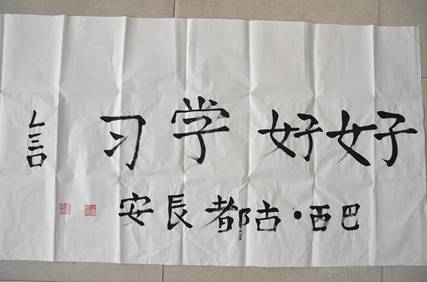 好好学习
巴西·古都長安